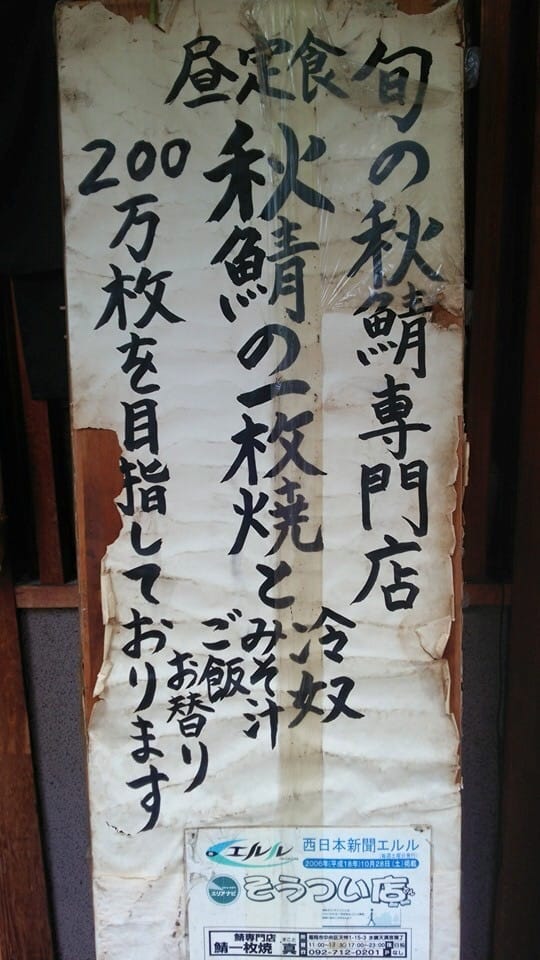 旬の秋鯖専門店
昼定食
秋鯖の一枚焼と
冷奴
みそ汁
ご飯
お替り
200万枚を目指しております
エルル
西日本新聞エルル
2006年(平成18年)10月28日(土)掲載
エリアナビ
そうつい店
鯖専門店
鯖一枚焼
まこと
真
092-712-0201